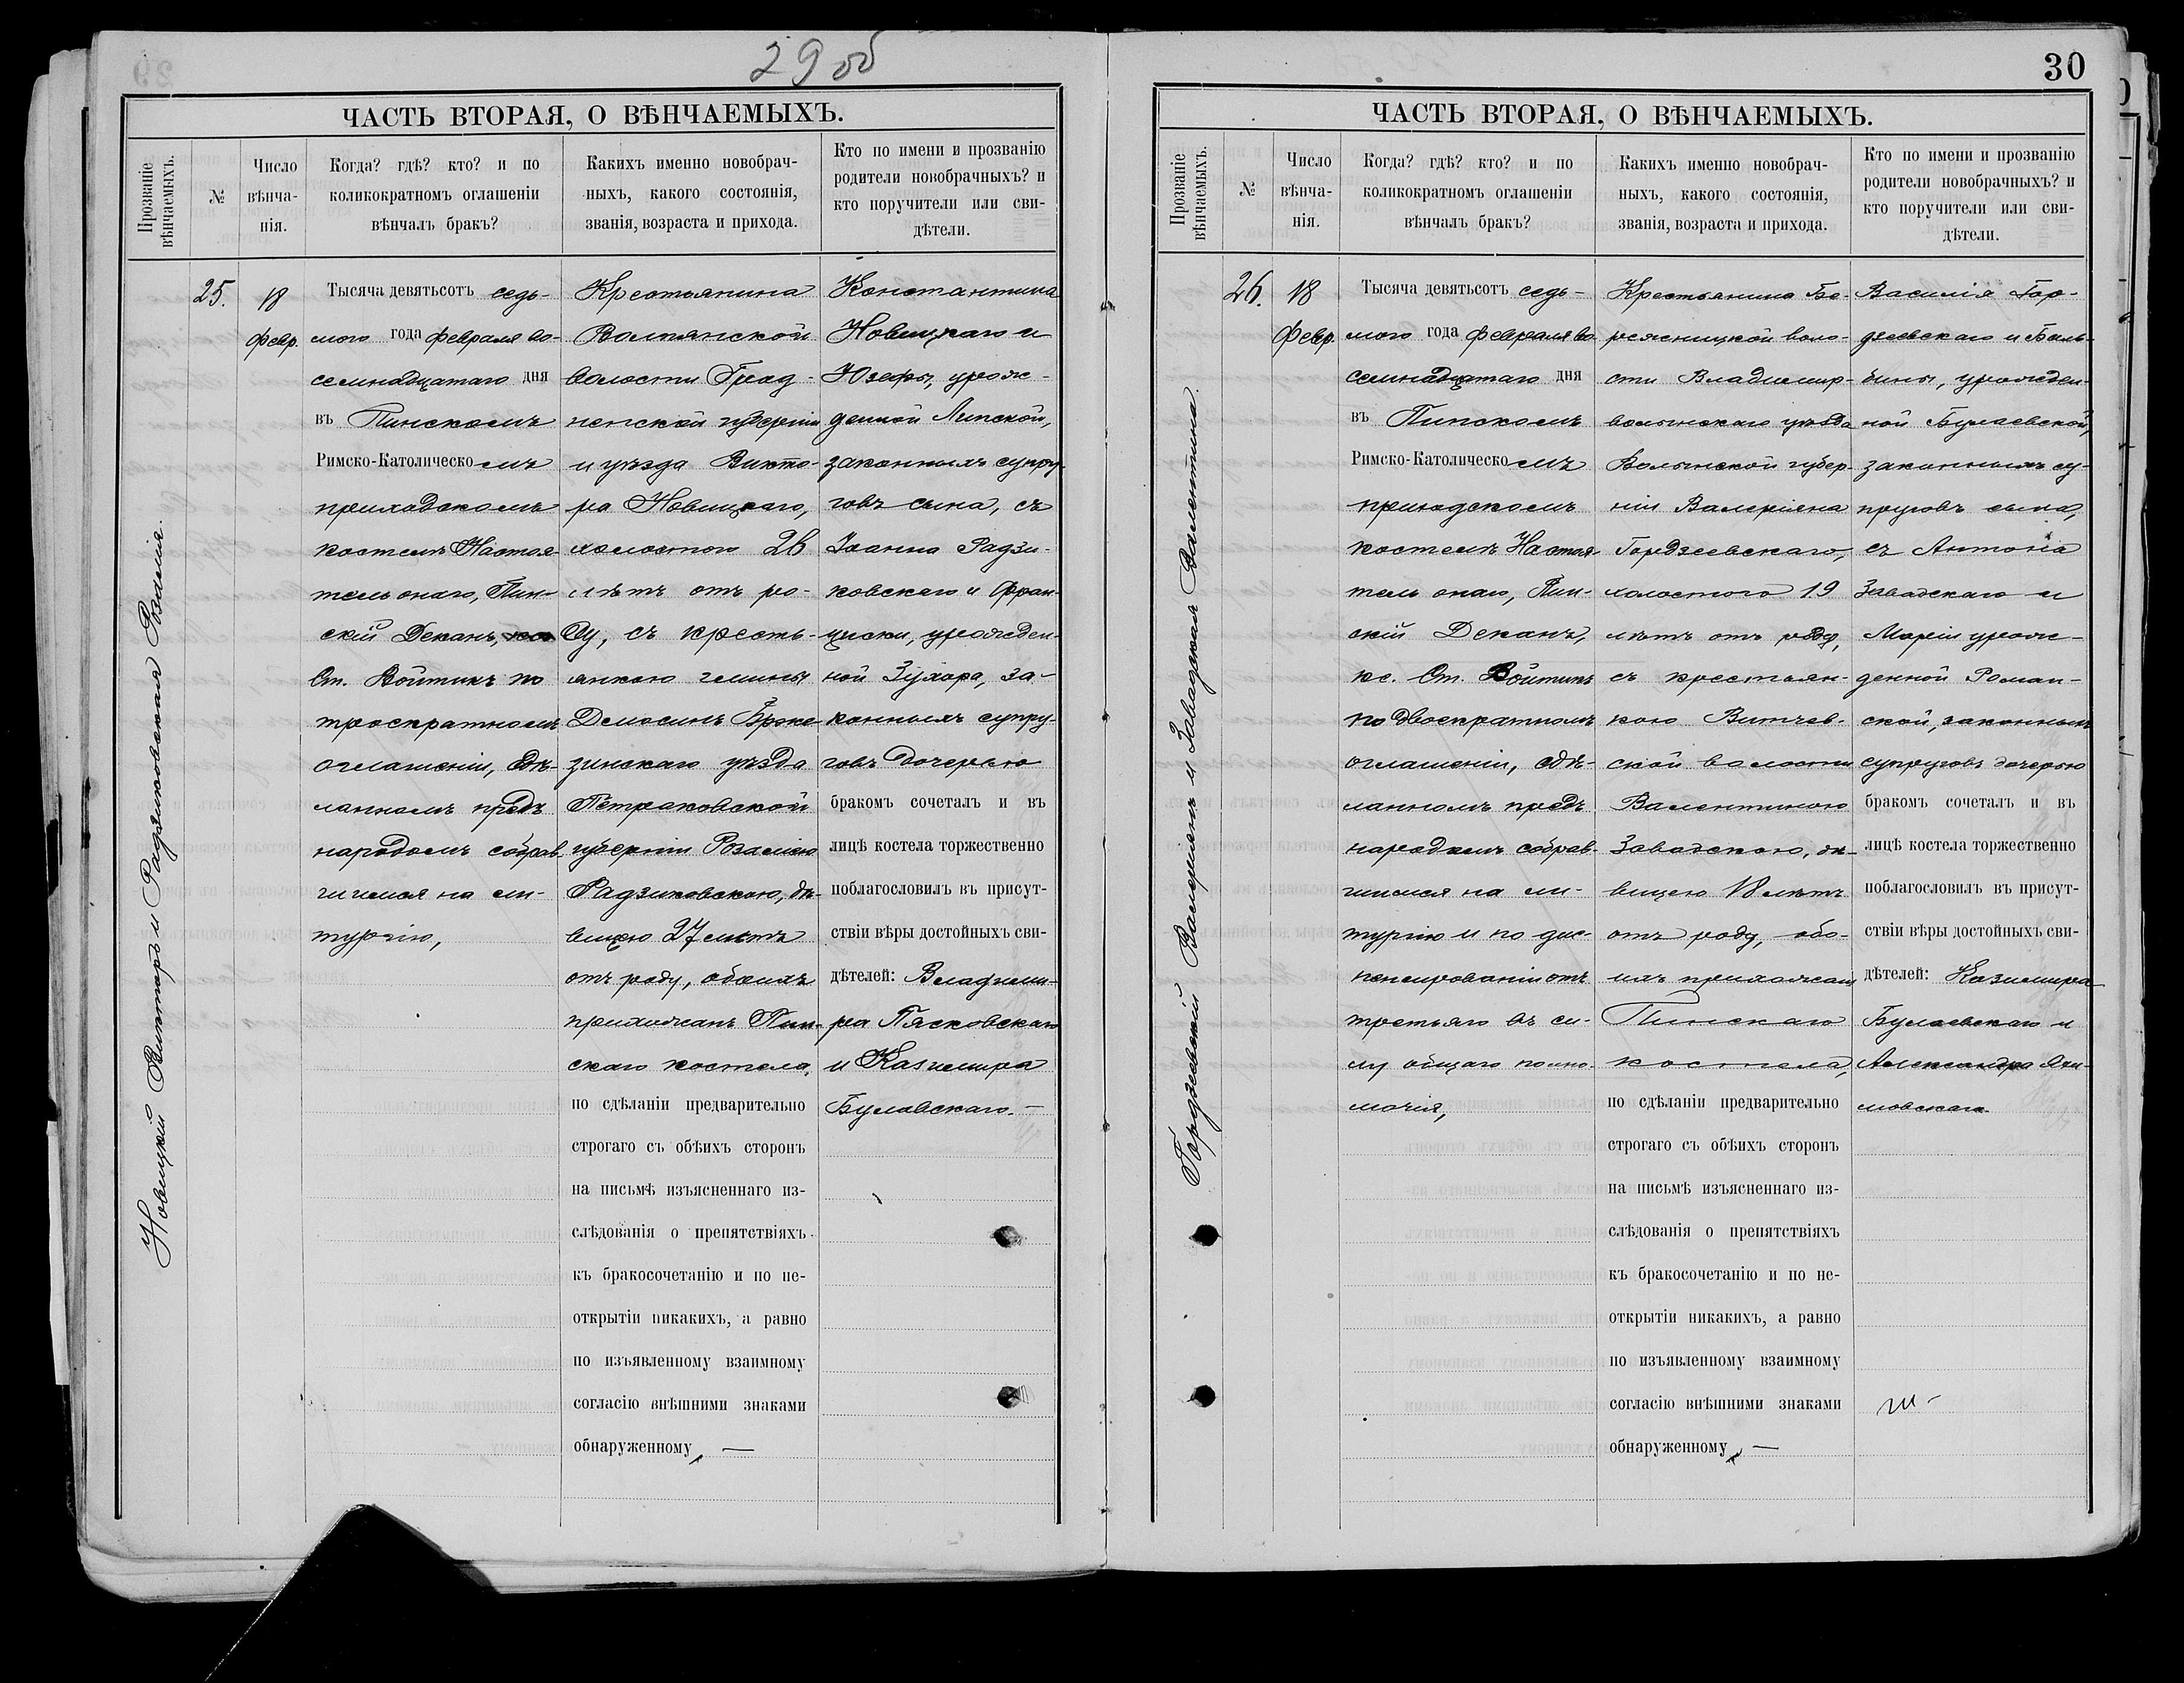 29 об
ЧАСТЬ ВТОРАЯ, О ВѢНЧАЕМЫХЪ.
Прозваніе
вѣнчаемыхъ.
№
Число
вѣнча-
нія.
Когда? гдѣ? кто? и по
коликократномъ оглашеніи
вѣнчалъ бракъ?
Какихъ именно новобрач-
ныхъ, какого состоянія,
званія, возраста и прихода.
Кто по имени и прозванію
родители новобрачныхъ? и
кто поручители или сви-
дѣтели.
Новицкій Викторъ и Радзиковская Розалія.
25.
18
Февр.
Тысяча девятьсотъ седь-
мого года февраля во-
семнадцатаго дня
въ Пинскомъ
Римско-Католическомъ
приходскомъ
костелѣ Настоя-
тель онаго, Пин-
скій Деканъ,
Ст. Войтикъ по
троекратномъ
оглашеніи, сдѣ-
ланномъ предъ
народомъ собрав-
шимся на ли-
тургію,
Крестьянина
Волпянской
волости Грод-
ненской губерніи
и уѣзда Викто-
ра Новицкаго,
холостого 26
лѣтъ отъ ро-
ду, съ кресть-
янкою гмины
Дмосинъ Брже-
зинскаго уѣзда
Петроковской
губерніи Розаліею
Радзиковскою, дѣ-
вицею 27 лѣтъ
отъ роду, обоихъ
прихожанъ Пин-
скаго костела,
по сдѣланіи предварительно
строгаго съ обѣихъ сторонъ
на письмѣ изъясненнаго из-
слѣдованія о препятствіяхъ
къ бракосочетанію и по не-
открытіи никакихъ, а равно
по изъявленному взаимному
согласію внѣшними знаками
обнаруженному, —
Константина
Новицкаго и
Юзефы, урож-
денной Липской,
законныхъ супру-
говъ сына, съ
Іоанна Радзи-
ковскаго и Фран-
циски, урожден-
ной Зухора, за-
конныхъ супру-
говъ дочерью
бракомъ сочеталъ и въ
лицѣ костела торжественно
поблагословилъ въ присут-
ствіи вѣры достойныхъ сви-
дѣтелей: Владими-
ра Пясковскаго
и Казимира
Булавскаго. —
30
ЧАСТЬ ВТОРАЯ, О ВѢНЧАЕМЫХЪ.
Прозваніе
вѣнчаемыхъ.
№
Число
вѣнча-
нія.
Когда? гдѣ? кто? и по
коликократномъ оглашеніи
вѣнчалъ бракъ?
Какихъ именно новобрач-
ныхъ, какого состоянія,
званія, возраста и прихода.
Кто по имени и прозванію
родители новобрачныхъ? и
кто поручители или сви-
дѣтели.
Гордзеевскій Валеріянъ и Завадзкая Валентина.
26.
18
Февр.
Тысяча девятьсотъ седь-
мого года февраля во-
семнадцатаго дня
въ Пинскомъ
Римско-Католическомъ
приходскомъ
костелѣ Настоя-
тель онаго, Пин-
скій Деканъ,
кс. Ст. Войтикъ
по двоекратномъ
оглашеніи, сдѣ-
ланномъ предъ
народомъ собрав-
шимся на ли-
тургію и по дис-
пенсированіи отъ
третьяго въ си-
лу общаго полно-
мочія,
Крестьянина Бе-
резницкой воло-
сти Владимир-
волынскаго уѣзда
Волынской губер-
ніи Валеріяна
Гордзеевскаго,
холостого 19
лѣтъ отъ роду,
съ крестьян-
кою Витчев-
ской волости
Валентиною
Завадскою, дѣ-
вицею 18 лѣтъ
отъ роду, обо-
ихъ прихожанъ
Пинскаго
костела,
по сдѣланіи предварительно
строгаго съ обѣихъ сторонъ
на письмѣ изъясненнаго из-
слѣдованія о препятствіяхъ
къ бракосочетанію и по не-
открытіи никакихъ, а равно
по изъявленному взаимному
согласію внѣшними знаками
обнаруженному, —
Василія Гор-
дзеевскаго и Баль-
бины, урожден-
ной Булаевской,
законныхъ су-
пруговъ сына,
съ Антона
Завадскаго и
Маріи урож-
денной Роман-
ской, законныхъ
супруговъ дочерью
бракомъ сочеталъ и въ
лицѣ костела торжественно
поблагословилъ въ присут-
ствіи вѣры достойныхъ сви-
дѣтелей: Казимира
Булаевскаго и
Александра